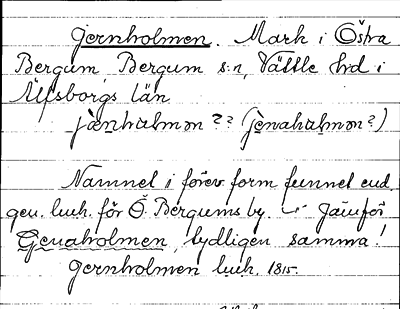 Jernholmen. Mark i Östra
Bergum, Bergum s:n, Vättle hrd i
Älfsborgs län
jænhalmɷn?? (jenahalmɷn?)
Namnet i förev. form funnet end.
gen. luch. för Ö. Bergums by. Jämför
Genaholmen, tydligen samma!
Jernholmen luch. 1815.